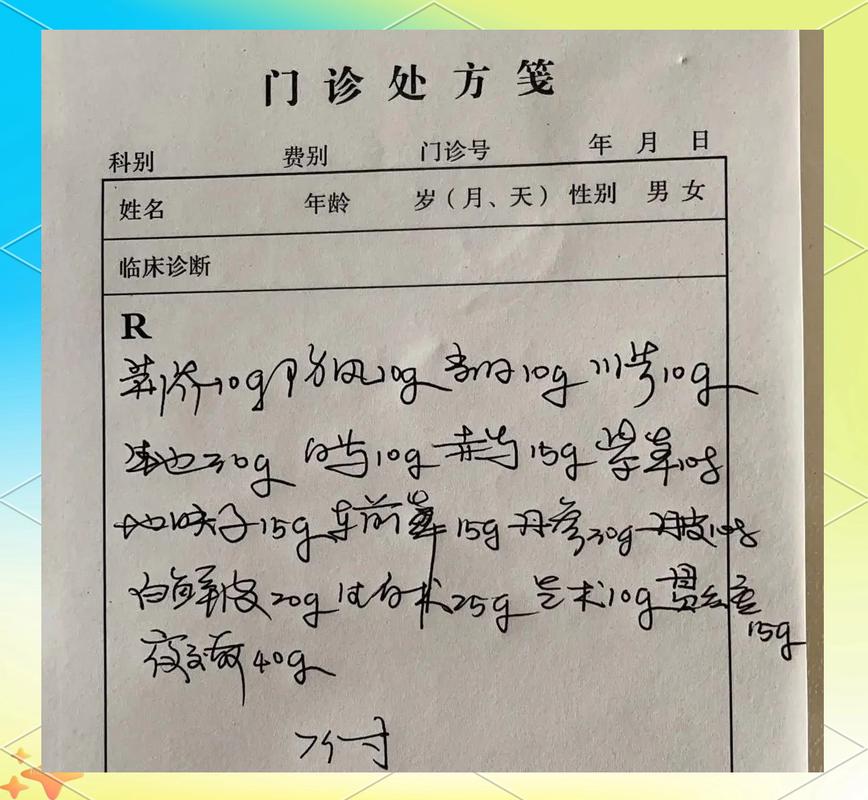 门诊处方笺
科别 费别 门诊号 年 月 日
姓名 年龄 岁（月、天） 性别 男 女
临床诊断
R
荆芥10g 防风10g 当归10g 川芎10g
生地30g 白芍10g 赤芍15g 紫草10g
地肤子15g 车前草15g 丹参30g 丹皮10g
白鲜皮20g 生白术25g 苍术10g
15g
夜交藤40g
7付